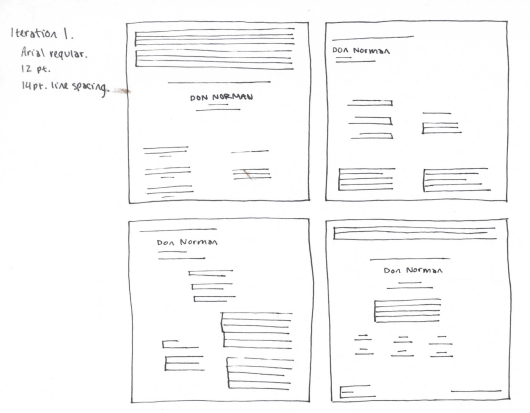 Iteration 1.
Arial regular.
12 pt.
14pt. line spacing.
DON NORMAN
Don Norman
Don Norman
Don Norman